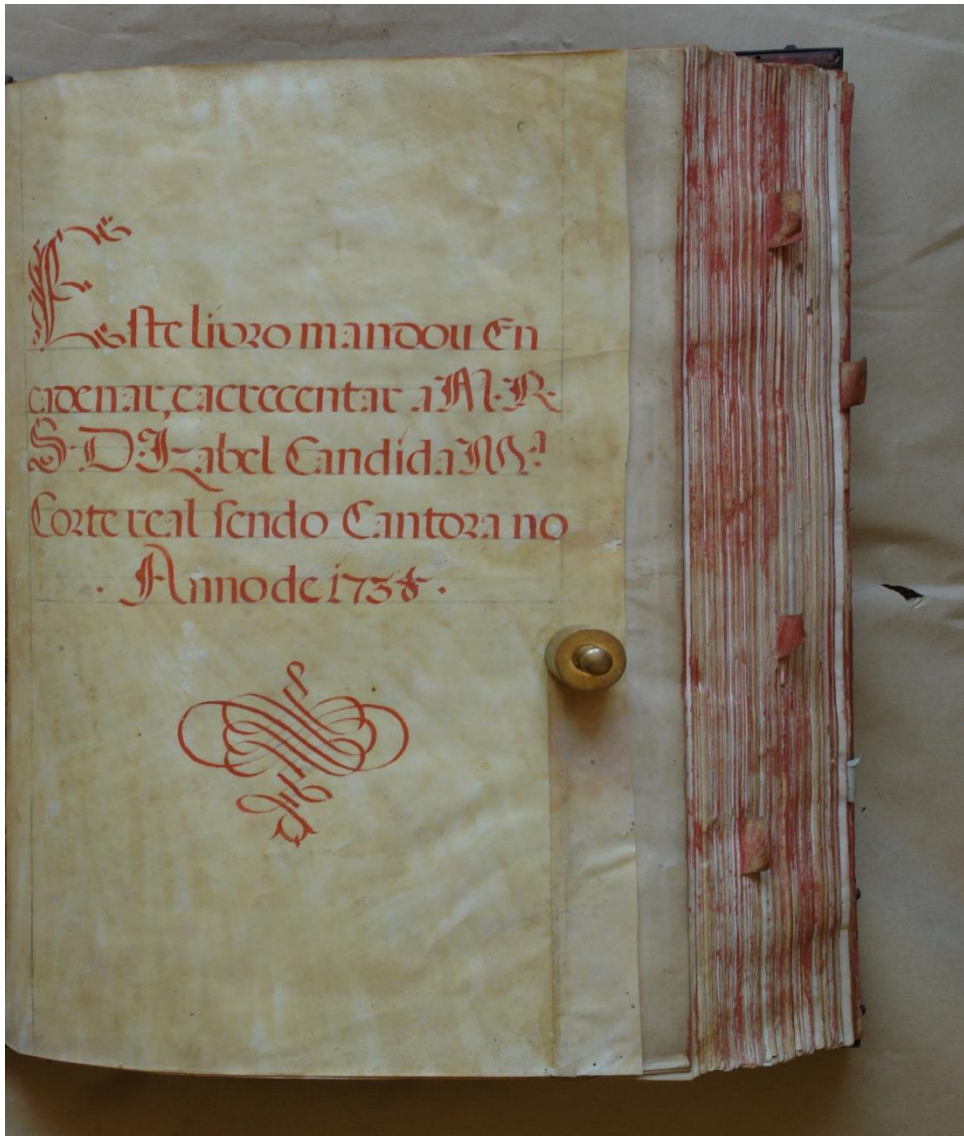 Este livro mandou En
cadenar, e acrecentar a M. R.
S. D. Izabel Candida Mª
Corte real sendo Cantora no
· Anno de ·